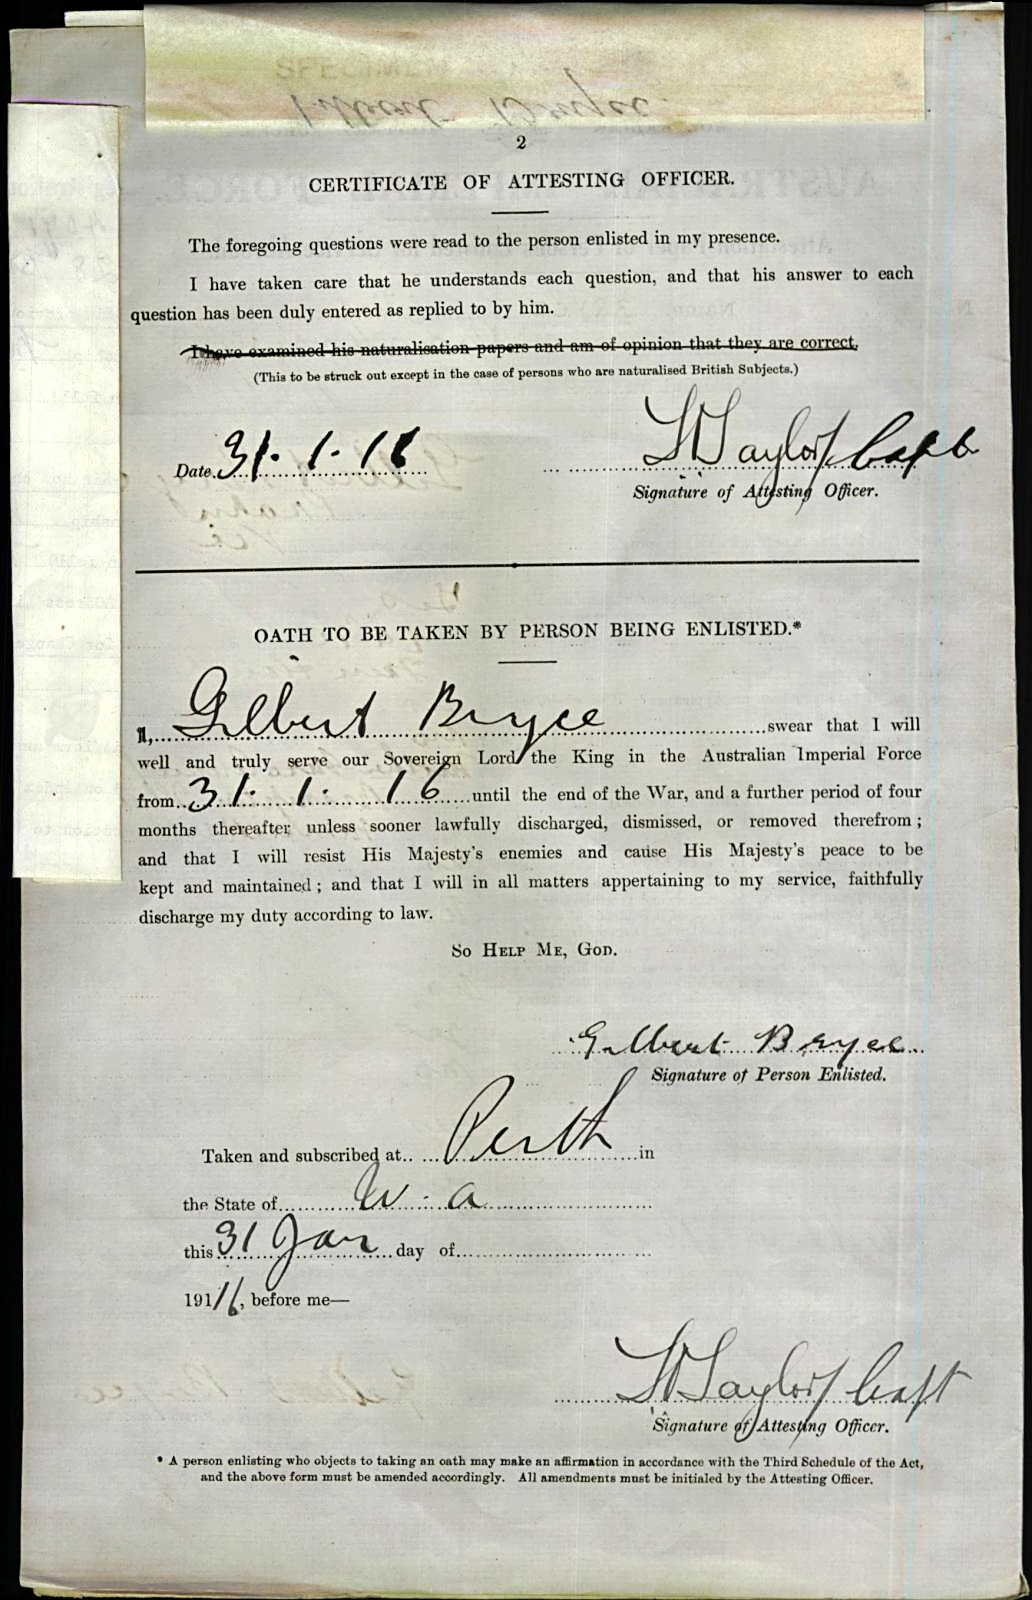 Gilbert Bryce
2
CERTIFICATE OF ATTESTING OFFICER.
The foregoing questions were read to the person enlisted in my presence.
I have taken care that he understands each question, and that his answer to each
question has been duly entered as replied to by him.
I have examined his naturalisation papers and am of opinion that they are correct.
(This to be struck out except in the case of persons who are naturalised British Subjects.)
Date 31.1.16 Taylor Capt
Signature of Attesting Officer.
OATH TO BE TAKEN BY PERSON BEING ENLISTED.*
I, Gilbert Bryce swear that I will
well and truly serve our Sovereign Lord the King in the Australian Imperial Force
from 31. 1. 16 until the end of the War, and a further period of four
months thereafter unless sooner lawfully discharged, dismissed, or removed therefrom;
and that I will resist His Majesty's enemies and cause His Majesty's peace to be
kept and maintained; and that I will in all matters appertaining to my service, faithfully
discharge my duty according to law.
So Help Me, God.
Gilbert Bryce
Signature of Person Enlisted.
Taken and subscribed at Perth in
the State of W.A
this 31 Jan day of
19116, before me—
Taylor Capt
Signature of Attesting Officer.
* A person enlisting who objects to taking an oath may make an affirmation in accordance with the Third Schedule of the Act,
and the above form must be amended accordingly. All amendments must be initialed by the Attesting Officer.